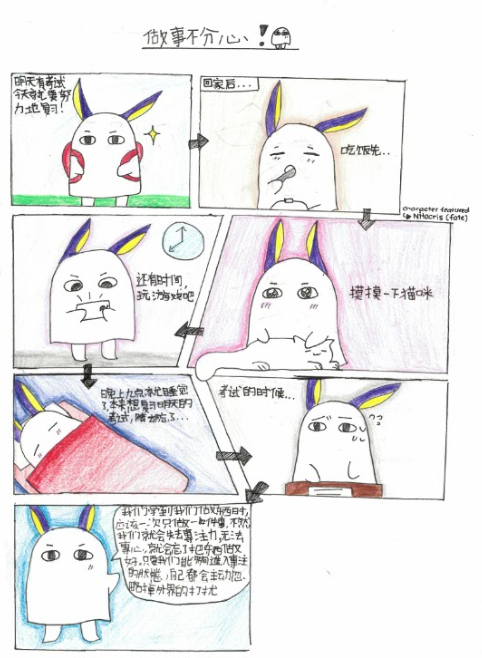 做事不分心!
明天有考试
今天就要努
力地复习!
回家后...
吃饭先..
character featured
Nitocris (fate)
摸摸一下猫咪
还有时间,
玩游戏吧
晚上九点就睡觉
了,本来想复习明天的
考试,
了...
考试的时候...
我们学到我们做东西时,
应该一次只做一件事,不然
我们就会失去专注力,无法
专心,就会忘了把东西做
好。只要我们能够进入专注
的状态,自己都会主动忽
略掉外界的打扰